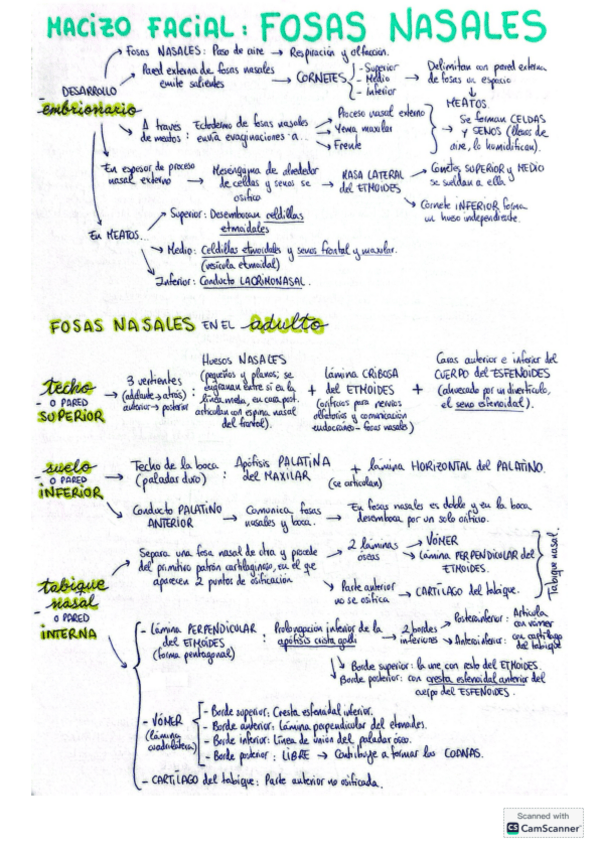 MACIZO FACIAL: FOSAS NASALES
Fosas NASALES: Paso de aire → Respiración y olfacción.
DESARROLLO
embrionario
Pared externa de fosas nasales
emite salientes
→ CORNETES
- Superior
- Medio
- Inferior
Delimitan con pared externa
de fosas un espacio
MEATOS.
A través
de meatos:
Ectodermo de fosas nasales
envía evaginaciones a...
Proceso nasal externo
Yema maxilar
Frente
Se forman CELDAS
y SENOS (llenos de
aire, lo humidifican).
En espesor de proceso
nasal externo
→ Mesénquima de alrededor
de celdas y senos se
osifica
→ MASA LATERAL
del ETMOIDES
Cornetes SUPERIOR y MEDIO
se sueldan a ella
Cornete INFERIOR forma
un hueso independiente.
En MEATOS...
Superior: Desembocan celdillas
etmoidales
Medio: Celdillas etmoidales y senos frontal y maxilar.
(vesícula etmoidal)
Inferior: Conducto LACRIMONASAL.
FOSAS NASALES EN EL adulto
techo
- O PARED
SUPERIOR
→ 3 vertientes
(adelante → atrás)
anterior → posterior
Huesos NASALES
(pequeños y planos; se
engranan entre sí en la
línea media, su cara post.
articula con espina nasal
del frontal).
+ lámina CRIBOSA
del ETMOIDES
(orificios para nervios
olfatorios y comunicación
endocráneo - fosas nasales)
+ Caras anterior e inferior del
CUERPO del ESFENOIDES
(ahuecado por un divertículo,
el seno esfenoidal).
suelo
- O PARED
INFERIOR
Techo de la boca
(paladar duro) :
Apófisis PALATINA
del MAXILAR
+ lámina HORIZONTAL del PALATINO.
(se articulan)
Conducto PALATINO
ANTERIOR
→ Comunica fosas
nasales y boca.
→ En fosas nasales es doble y en la boca
desemboca por un solo orificio.
tabique
nasal
- O PARED
INTERNA
Separa una fosa nasal de otra y procede
del primitivo patrón cartilaginoso, en el que
aparecen 2 puntos de osificación
2 láminas
óseas
VÓMER
Lámina PERPENDICULAR del
ETMOIDES.
Parte anterior
no se osifica
→ CARTÍLAGO del tabique.
Tabique nasal.
- Lámina PERPENDICULAR
del ETMOIDES
(forma pentagonal)
: Prolongación inferior de la
apófisis crista galli
→ 2 bordes
inferiores
Posteroinferior: Articula
con vómer
Anteroinferior: con cartílago
del tabique
Borde superior: la une con resto del ETMOIDES.
Borde posterior: con cresta esfenoidal anterior del
cuerpo del ESFENOIDES.
- VÓMER
(lámina
cuadrilátera)
- Borde superior: Cresta esfenoidal inferior.
- Borde anterior: Lámina perpendicular del etmoides.
- Borde inferior: Línea de unión del paladar óseo.
- Borde posterior: LIBRE → Contribuye a formar las COANAS.
- CARTÍLAGO del tabique: Parte anterior no osificada.
Scanned with
CS CamScanner